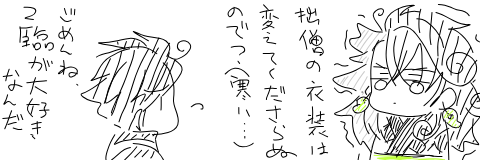 拙僧の衣装は
変えてくださらぬ
のでつ(寒い…)
ごめんね、
2臨が大好き
なんだ